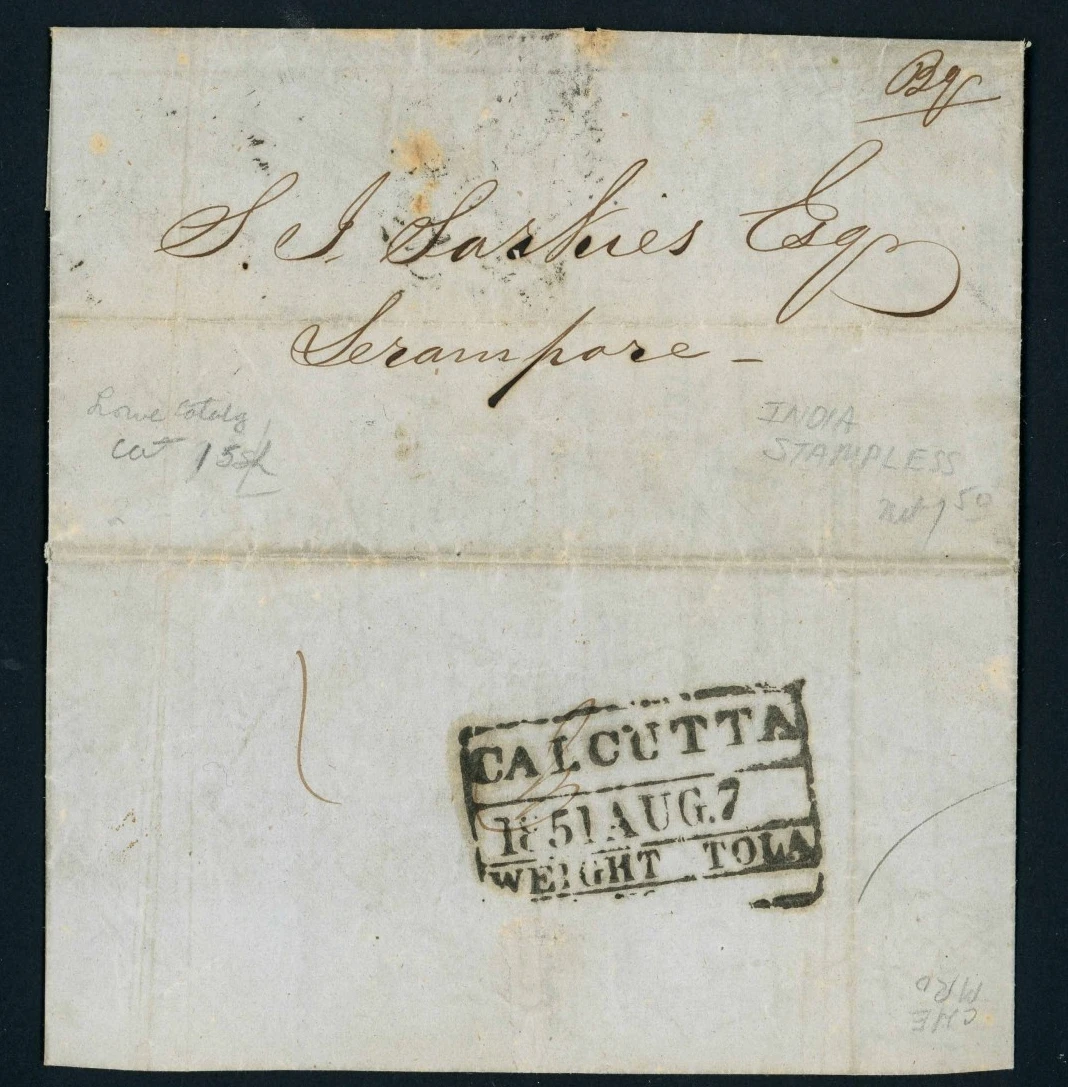 Bg
S. J. Sarkies Esqr
Serampore -
Lowe Catalg
Cat 15sh
INDIA
STAMPLESS
net 7 50
CALCUTTA
1851 AUG. 7
WEIGHT TOLA